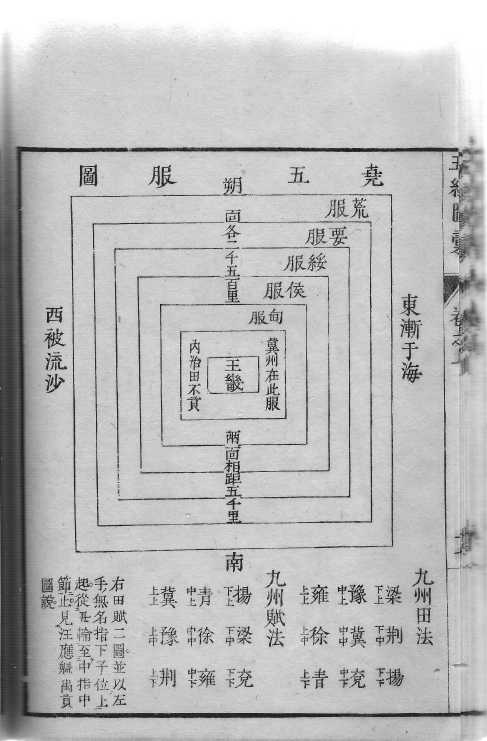 堯五服圖
朔
面各二千五百里
荒服
要服
綏服
侯服
甸服
冀州在此服
王畿
內治田不貢
兩面相距五千里
南
東漸于海
西被流沙
九州田法
梁下上 荆下中 揚下下
豫中上 冀中中 兗中下
雍上上 徐上中 青上下
九州賦法
揚下上 梁下中 兗下下
青中上 徐中中 雍中下
冀上上 豫上中 荆上下
右田賦二圖並以左
手無名指下子位上
起從 輪至中指中
節止見汪應 禹貢
圖說